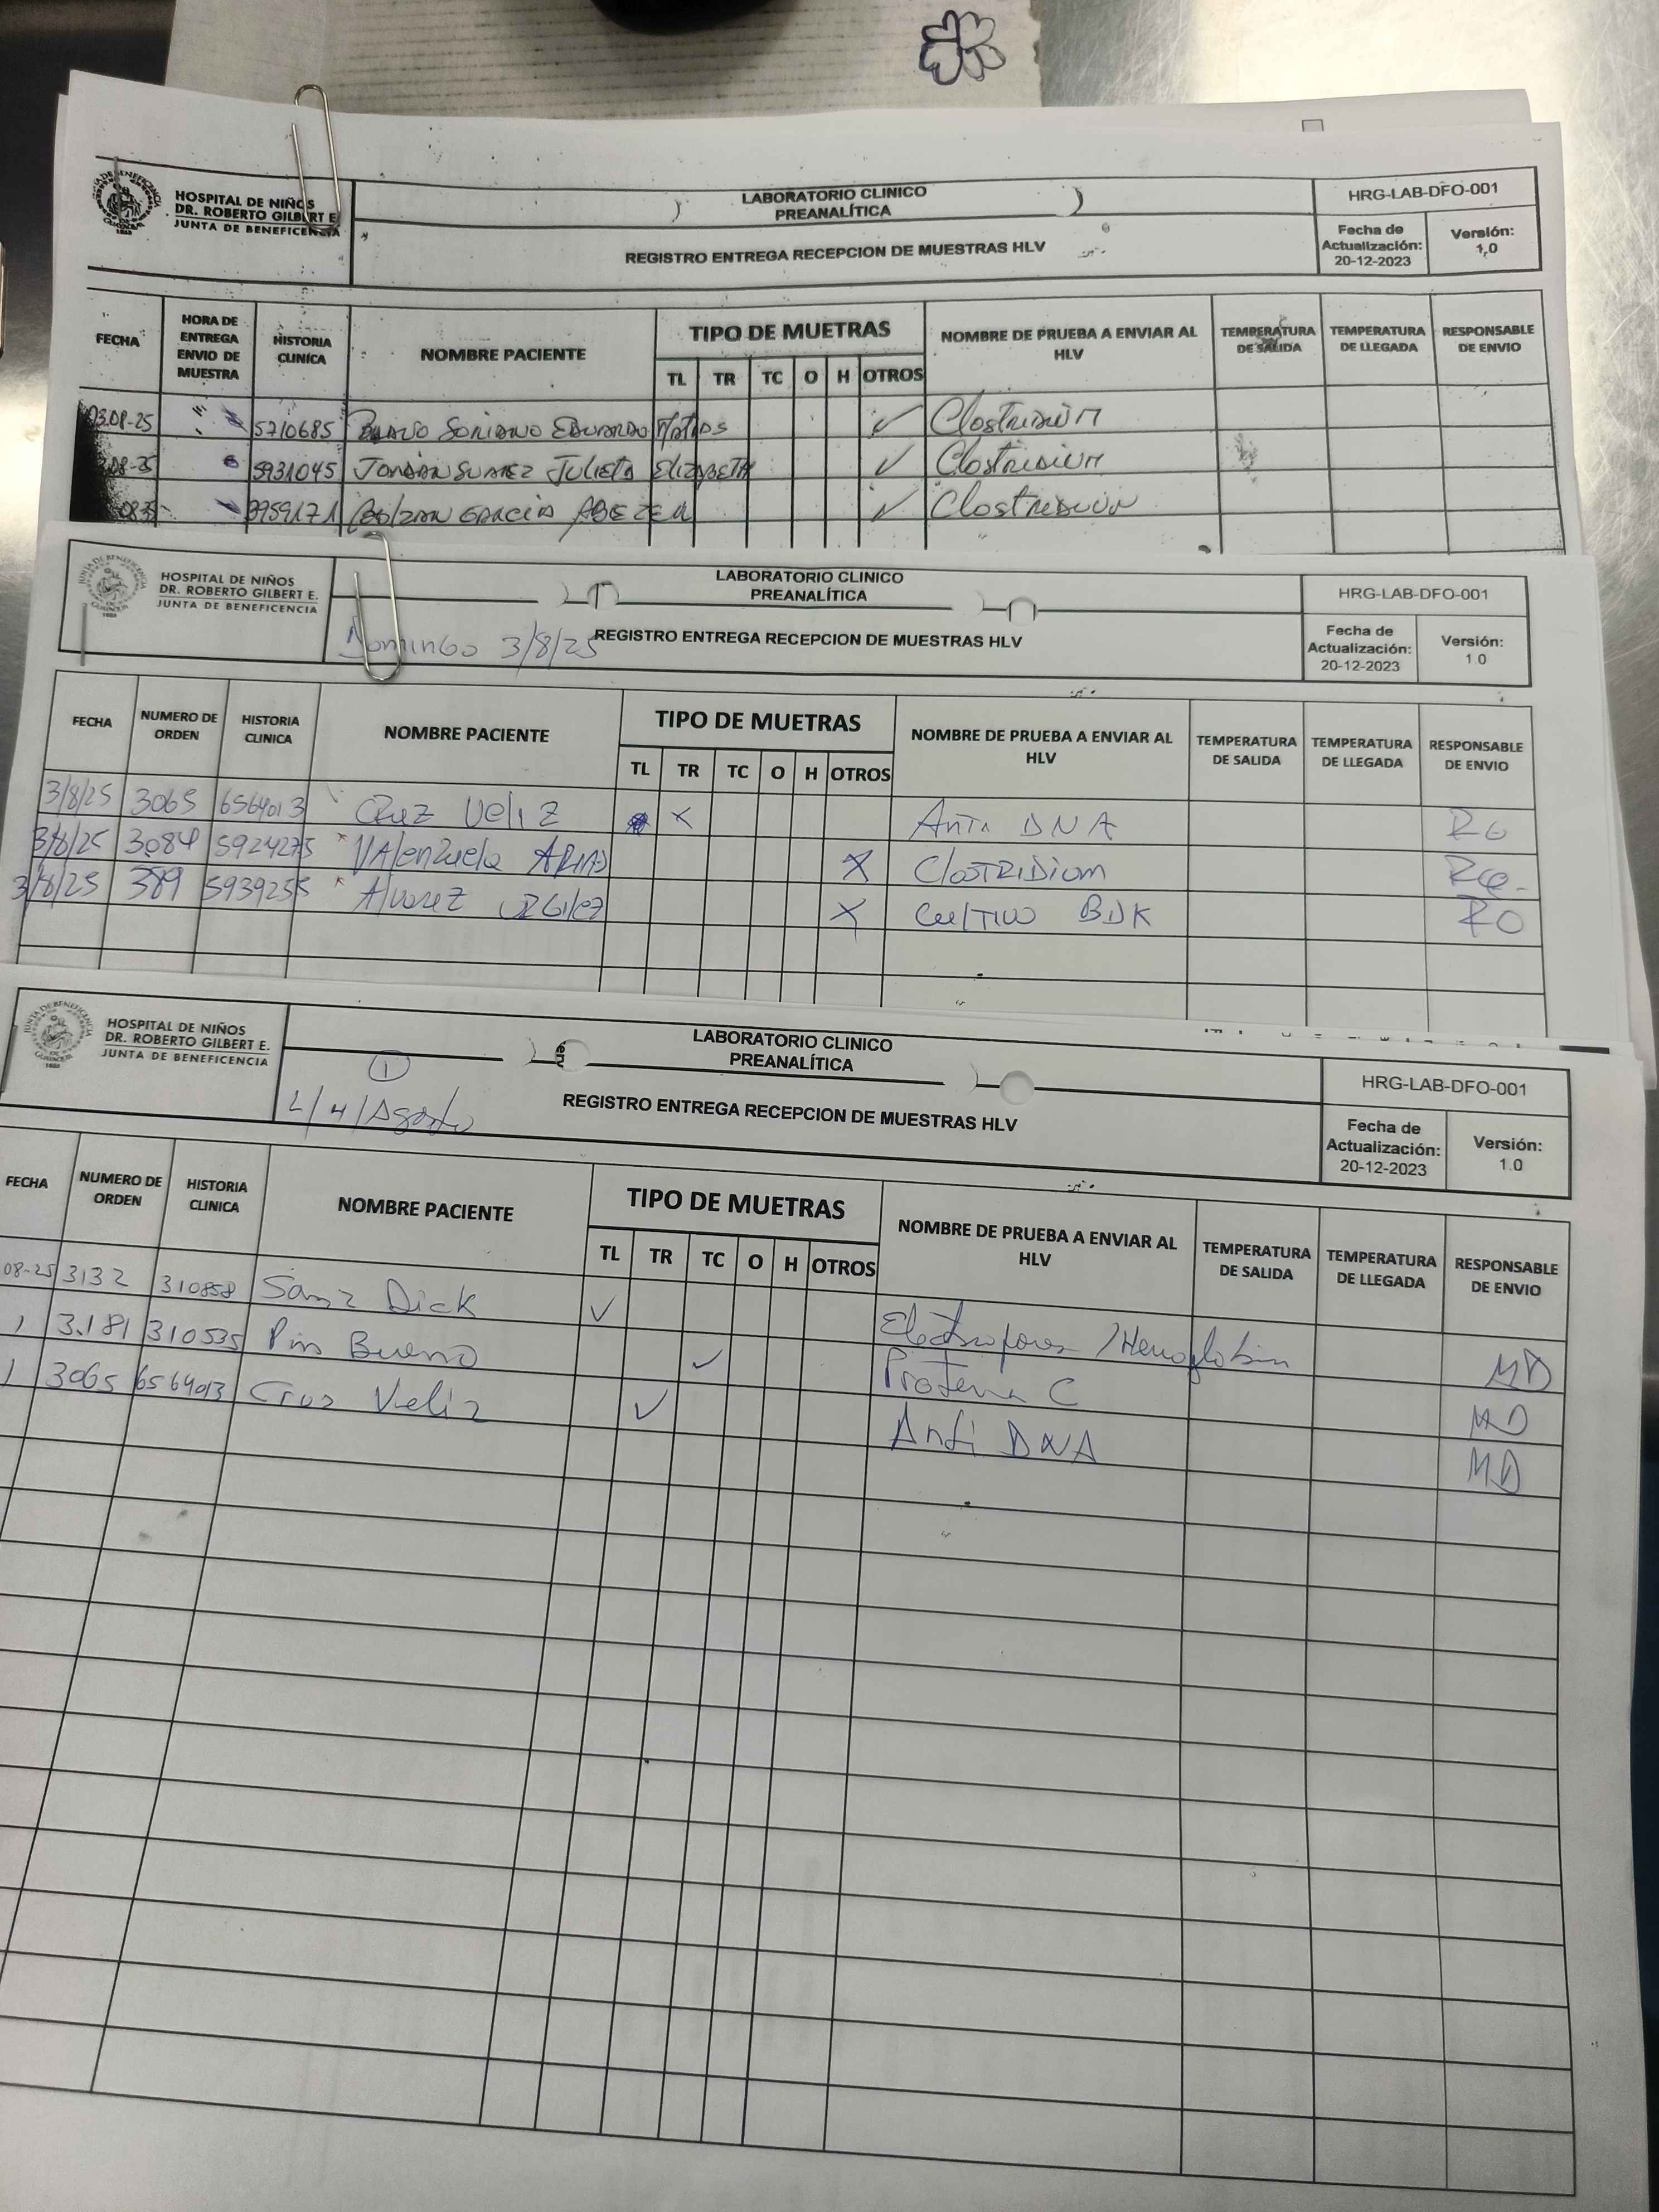 HOSPITAL DE NIÑOS
DR. ROBERTO GILBERT E.
JUNTA DE BENEFICENCIA
LABORATORIO CLINICO
PREANALÍTICA
REGISTRO ENTREGA RECEPCION DE MUESTRAS HLV
HRG-LAB-DFO-001
Fecha de Actualización: 20-12-2023
Versión: 1,0
FECHA HORA DE ENTREGA ENVIO DE MUESTRA HISTORIA CLINICA NOMBRE PACIENTE TIPO DE MUETRAS NOMBRE DE PRUEBA A ENVIAR AL HLV TEMPERATURA DE SALIDA TEMPERATURA DE LLEGADA RESPONSABLE DE ENVIO
TL TR TC O H OTROS
03.08-25 5710685 Soriano Eduardo Matias ✓ Clostridium
08-25 5931045 Jordan Suarez Julieta Elizabeth ✓ Clostridium
Garcia ✓ Clostridium
HOSPITAL DE NIÑOS
DR. ROBERTO GILBERT E.
JUNTA DE BENEFICENCIA
LABORATORIO CLINICO
PREANALÍTICA
Domingo 3/8/25
REGISTRO ENTREGA RECEPCION DE MUESTRAS HLV
HRG-LAB-DFO-001
Fecha de Actualización: 20-12-2023
Versión: 1.0
FECHA NUMERO DE ORDEN HISTORIA CLINICA NOMBRE PACIENTE TIPO DE MUETRAS NOMBRE DE PRUEBA A ENVIAR AL HLV TEMPERATURA DE SALIDA TEMPERATURA DE LLEGADA RESPONSABLE DE ENVIO
TL TR TC O H OTROS
3/8/25 3065 6564013 Cruz Veliz X Anti DNA RO
3/8/25 3084 5924275 * Valenzuela Arias X Clostridium
3/8/25 389 5939255 * Alvarez Urgilez X Cultivo BDK RO
HOSPITAL DE NIÑOS
DR. ROBERTO GILBERT E.
JUNTA DE BENEFICENCIA
LABORATORIO CLINICO
PREANALÍTICA
1
L/4/Agosto
REGISTRO ENTREGA RECEPCION DE MUESTRAS HLV
HRG-LAB-DFO-001
Fecha de Actualización: 20-12-2023
Versión: 1.0
FECHA NUMERO DE ORDEN HISTORIA CLINICA NOMBRE PACIENTE TIPO DE MUETRAS NOMBRE DE PRUEBA A ENVIAR AL HLV TEMPERATURA DE SALIDA TEMPERATURA DE LLEGADA RESPONSABLE DE ENVIO
TL TR TC O H OTROS
08-25 3132 310858 Sanz Dick ✓ Electrofores / Hemoglobin MD
3.181 310535 Pin Bueno ✓ Proteina C MD
3065 6564013 Cruz Veliz ✓ Anti DNA MD